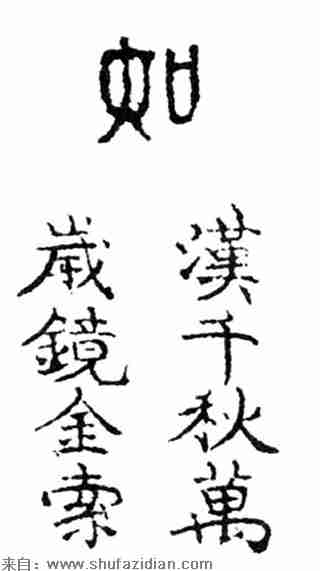 如
漢千秋萬
歲鏡金索
来自：www.shufazidian.com